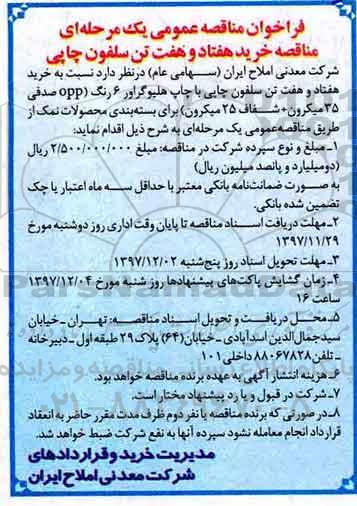 فراخوان مناقصه عمومی یک مرحله‌ای
مناقصه خرید هفتاد و هفت تن سلفون چاپی
شرکت معدنی املاح ایران (سهامی عام) درنظر دارد نسبت به خرید
هفتاد و هفت تن سلفون چاپی با چاپ هلیوگراور ۶ رنگ (opp صدفی
۳۵ میکرون+شفاف ۲۵ میکرون) برای بسته‌بندی محصولات نمک از
طریق مناقصه‌عمومی یک مرحله‌ای به شرح ذیل اقدام نماید:
۱ـ مبلغ و نوع سپرده شرکت در مناقصه: مبلغ ۲/۵۰۰/۰۰۰/۰۰۰ ریال
(دومیلیارد و پانصد میلیون ریال)
به صورت ضمانت‌نامه بانکی معتبر با حداقل سه ماه اعتبار یا چک
تضمین شده بانکی.
۲ـ مهلت دریافت اسناد مناقصه تا پایان وقت اداری روز دوشنبه مورخ
۱۳۹۷/۱۱/۲۹
۳ـ مهلت تحویل اسناد روز پنج‌شنبه ۱۳۹۷/۱۲/۰۲
۴ـ زمان گشایش پاکت‌های پیشنهادها روز شنبه مورخ ۱۳۹۷/۱۲/۰۴
ساعت ۱۶
۵ـ محل دریافت و تحویل اسناد مناقصه: تهران ـ خیابان
سیدجمال‌الدین اسدآبادی ـ خیابان(۶۴) پلاک ۲۹ طبقه اول ـ دبیرخانه
ـ تلفن ۸۸۰۶۷۸۲۸ داخلی ۱۰۱
۶ـ هزینه انتشار آگهی به عهده برنده مناقصه خواهد بود.
۷ـ شرکت در قبول و یا رد پیشنهاد مختار است.
۸ـ در صورتی که برنده مناقصه یا نفر دوم ظرف مدت مقرر حاضر به انعقاد
قرارداد انجام معامله نشود سپرده آنها به نفع شرکت ضبط خواهد شد.
مدیریت خرید و قراردادهای
شرکت معدنی املاح ایران